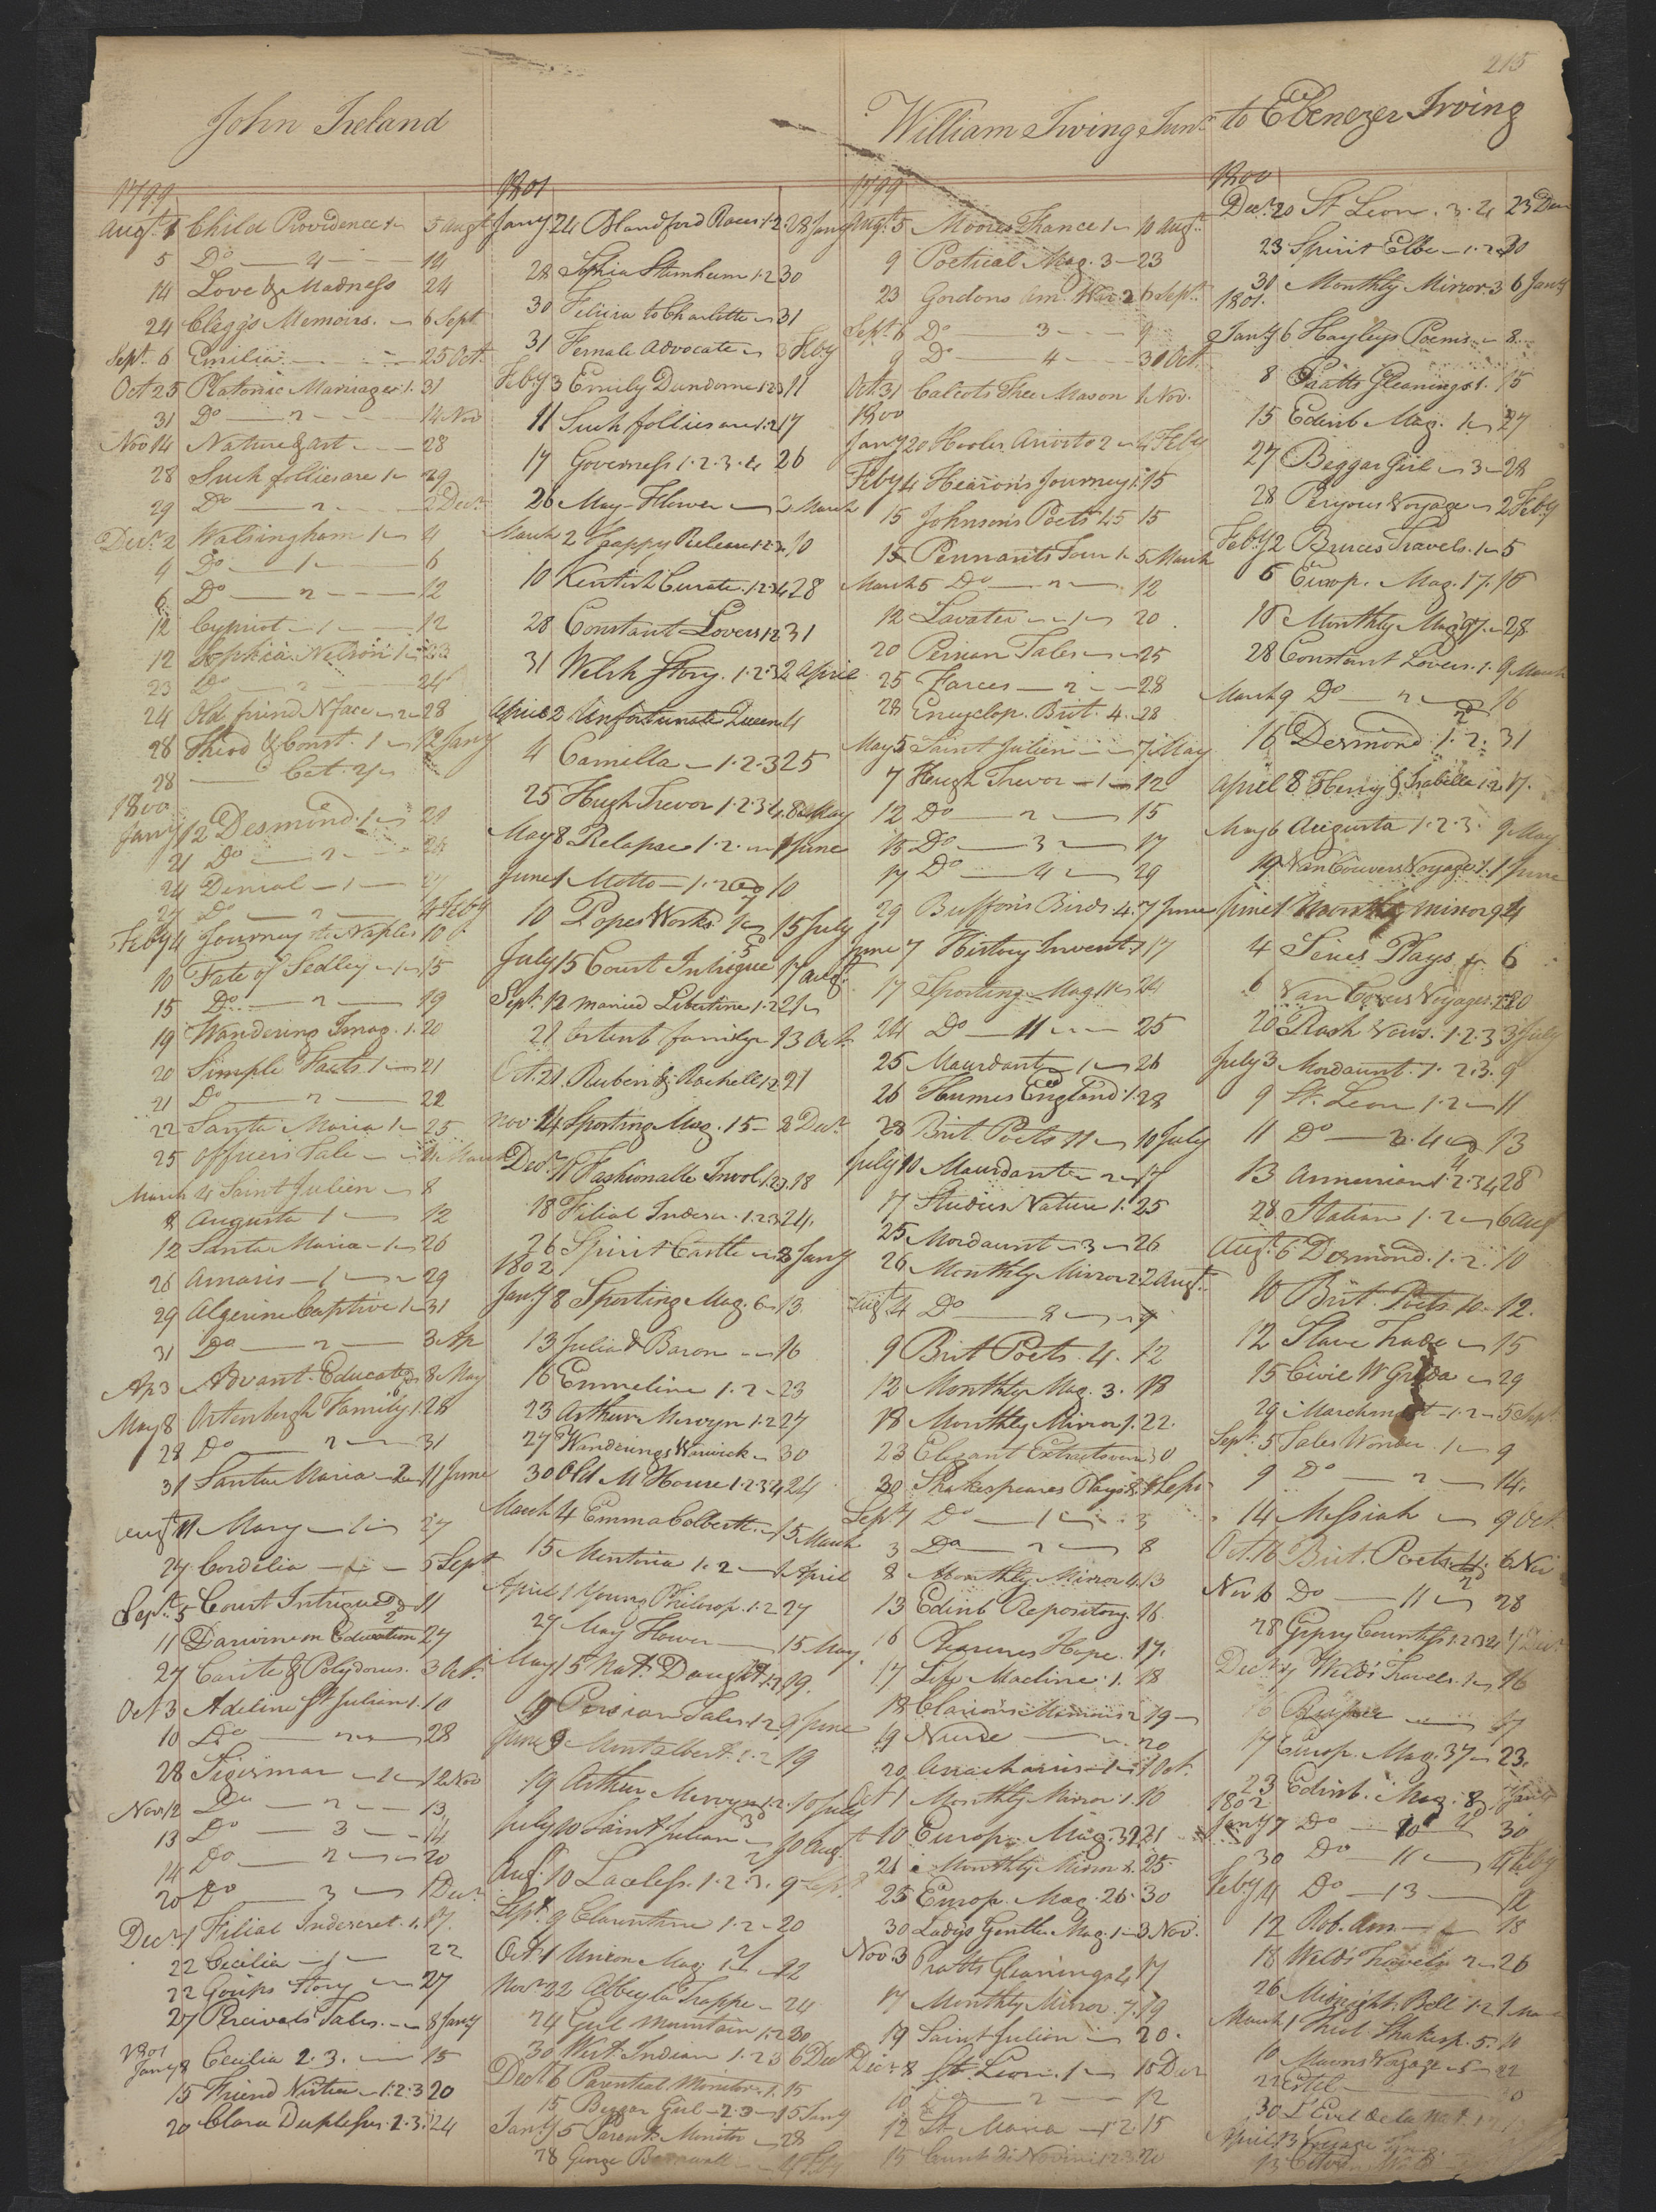 215
John Ireland
William Irving Junr to Ebenezer Irving
1799
Augt 1 Child Providence 1 5 Augt
5 Do 4 14
14 Love & Madness 24
24 Clegg's Memoirs. 6 Sept
Sept. 6 Emilia 25 Oct.
Oct 25 Platonic Marriages 1. 31
31 Do 2 14 Nov
Nov 14 Nature & Art 28
28 Such follies are 1 29
29 Do 2 2 Decr
Decr 2 Walsingham 1 4
4 Do 1 6
6 Do 2 12
12 Cypriot 1 12
12 Sophia Nelson 1 23
23 Do 2 24
24 Old friend N face 2 28
28 Theod & Const. 1 12 Jany
28 Cet. 2
1800
Jany 12 Desmond. 1 21
21 Do 2 24
24 Denial 1 27
27 Do 2 4 Feby
Feby 4 Journey to Naples 10
10 Fate of Sedley 1 15
15 Do 2 19
19 Wandering Imag. 1. 20
20 Simple Facts. 1 21
21 Do 2 22
22 Santa Maria 1 25
25 Officers Tale 4 March
March 4 Saint Julien 8
8 Augusta 1 12
12 Santa Maria 1 26
26 Amaris 1 29
29 Algerine Captive 1 31
31 Do 2 3 Ap
Ap 3 Advant. Educat 8 May
May 8 Ortenburgh Family 1. 28
28 Do 2 31
31 Santa Maria 2 11 June
Augt 11 Mary 1 27
27 Cordelia 5 Sept
Sept. 5 Court Intrigue 2 11
11 Darwin on Education 27
27 Carite & Polydorus. 3 Oct.
Oct 3 Adeline St Julian 1. 10
10 Do 28
28 Sigismar 1 12 Nov
Nov 12 Do 2 13
13 Do 3 14
14 Do 2 20
20 Do 3 1 Decr
Decr 1 Filial Indescret. 1. 17.
22 Cecilia 1 22
22 Gosips Story 27
27 Percivals Tales. 8 Jany
1801
Jany 8 Cecilia 2. 3. 15
15 Friend Virtue 1. 2. 3 20
20 Clara Duplessis. 2. 3. 24
1801
Jany 24 Blandford Races 1. 2. 28 Jany
28 Sophia Sternheim 1. 2 30
30 Felicia to Charlotte 31
31 Female Advocate 3 Feby
Feby 3 Emily Dundorne 1. 2. 3 11
11 Such follies are 1. 2 17
17 Governess 1. 2. 3. 4 26
26 May-Flower 2 March
March 2 Happy Release 1. 2. 3. 10
10 Kentish Curate. 1. 2. 3. 4 28
28 Constant Lovers 1. 2 31
31 Welsh Story. 1. 2. 3 2 April
April 2 Unfortunate Queen 4
4 Camilla 1. 2. 3 25
25 Hugh Trevor 1. 2. 3 4. 8 May
May 8 Relapse 1. 2. 1 June
June 1 Motto 1. 2 10
10 Popes Works 15 July
July 15 Court Intrigue 17 Augt
Sept. 12 Married Libertine 1. 2 21
21 Ortenb family 13 Oct.
Oct. 21 Ruben & Rachell 1. 2 21
Nov. 14 Sporting Mag. 15 2 Decr
Decr 11 Fashionable Invol 1. 2. 3. 18
18 Filial Indescr. 1. 2. 3 24.
26 Spirit Castle 8 Jany
1802
Jany 8 Sporting Mag. 6 13.
13 Julia & Baron 16
16 Emmeline 1. 2 23
23 Arthur Mervyn 1. 2 27
27 Wanderings Warwick 30
30 Old M House 1. 2. 3 4 24
March 4 Emma Colbert 15 March
15 Mentoria 1. 2 1 April
April 1 Young Philosop. 1. 2 27
27 May Flower 15 May
May 15 Nat. Daught 1. 2 19.
19 Persian Tales 1. 2 9 June
June 9 Montalbert 1. 2 19
19 Arthur Mervyn 1. 2. 10 July
July 10 Saint Julian 10 Aug
Augt 10 Lawless. 1. 2. 3. 9 Sept.
Sept. 9 Clarentine 1. 2 20
Oct 1 Union Mag. 1. 22
Novr 22 Abbey la Trappe 24
24 Girl Mountain 1. 2 30
30 West Indian 1. 2 3 6 Decr
Decr 6 Parential Monitor 1. 15
15 Beggar Girl 2. 3 15 Jany
Jany 15 Parents Monitor 28
28 George Barnwell 4 Feby
1799
Augt 5 Moores France 1 10 Augt
9 Poetical Mag. 3 23
23 Gordons Am. War 2 6 Sept.
Sept. 6 Do 3 9
9 Do 4 30 Oct.
Oct. 31 Calcots Free Mason 1 Nov.
1800
Jany 20 Hooles Ariosto 2 4 Feby
Feby 4 Hearons Journey 1. 15
15 Johnsons Poets 45 15
15 Pennants Tour 1 5 March
March 5 Do 2 12
12 Lavater 1 20
20 Persian Tales 25
25 Farces 2 28
28 Encyclop. Brit. 4. 28
May 5 Saint Julien 7 May
7 Hugh Trevor 1 12
12 Do 2 15
15 Do 3 17
17 Do 4 29
29 Buffon's Birds 4. 7 June
June 7 History Invent. 1 17
17 Sporting Mag 11 24
24 Do 11 25
25 Maurdant 1 26
26 Humes England 1. 28
28 Brit Poets 11 10 July
July 10 Maurdant 2 17
17 Studies Nature 1. 25
25 Mordaunt 3 26
26 Monthly Mirror 2 2 Augt
Augt 4 Do 8 9
9 Brit Poets. 4. 12
12 Monthly Mag. 3. 18
18 Monthly Mirror 1. 22.
23 Elegant Extracts 30
30 Shakespeares Plays 8. 1 Sepr
Sept 1 Do 1 3
3 Do 2 8
8 Monthly Mirror 4. 13
13 Edinb Repository. 16.
16 Pleasures Hope. 17.
17 Life Macline. 1. 18
18 Clarions Memoirs 2 19
19 Nurse 20
20 Anacharsis 1 1 Oct.
Oct 1 Monthly Mirror. 1. 10
10 Europ. Mag. 32 21
21 Monthly Mirror 2. 25
25 Europ. Mag. 26. 30
30 Ladys Gentle Mag. 1 3 Nov.
Nov. 3 Pratts Gleanings 2 17
17 Monthly Mirror. 7. 19
19 Saint Julien 20.
Decr 8 St. Leon. 1 10 Decr
10 Do 2 12
12 St. Maria 1. 2. 15
15 Count di Novini 1. 2. 3 20
1800
Decr 20 St Leon. 3. 4 23 Decr
23 Spirit Elbe 1. 2. 30
30 Monthly Mirror. 3 6 Jany
1801.
Jany 6 Hayleys Poems 8
8 Pratts Gleanings 1. 15
15 Edinb Mag. 1 27
27 Beggar Girl 3 28
28 Peryous Voyage 2 Feby
Feby 2 Bruces Travels. 1 5
5 Europ. Mag. 17. 16
16 Monthly Mag. 28
28 Constant Lovers. 1. 9 March
March 9 Do 2 16
16 Desmond 1. 2. 31
April 8 Henry & Isabella 1. 2 17.
May 6 Augusta 1. 2. 3. 9 May
19 Van Couvers Voyages 1. 1 June
June 1 Monthly Mirror 9 4
4 Seines Plays 6
6 Van Covers Voyages. 2. 20
20 Rash Vows. 1. 2. 3 3 July
July 3 Mordaunt. 1. 2. 3. 9
9 St. Leon 1. 2 11
11 Do 3. 4 13
13 Armenian 1. 2. 3 4 28
28 Italian 1. 2 6 Augt
Augt 6 Desmond. 1. 2. 10
10 Brit. Poets. 10 12.
12 Slave Trade 15
15 Civil W Grada 29
29 Marchmont 1. 2 5 Sept.
Sept. 5 Tales Wonder. 1 9
9 Do 2 14.
14 Messiah 9 Oct
Oct. 16 Brit. Poets 6 Nov
Nov 6 Do 11 28
28 Gipsy Countess 1. 2. 3 4 7 Decr
Decr 7 Weld's Travels. 1 16
16 17
17 Europ. Mag. 37 23.
23 Edinb. Mag. 8 7 Jany
1802
Jany 7 Do 10 30
30 Do 11 4 Feby
Feby 4 Do 13 12
12 Rob. Am. 18
18 Weld's Travels 2 26
26 Midnight Bell 1. 2 1 March
March 1 Thesl. Shakesp. 5. 10
10 Mavors Voyage 5 22
22 Estel 30
30 L'Evel de la Nat.
April 13 Voyage
13